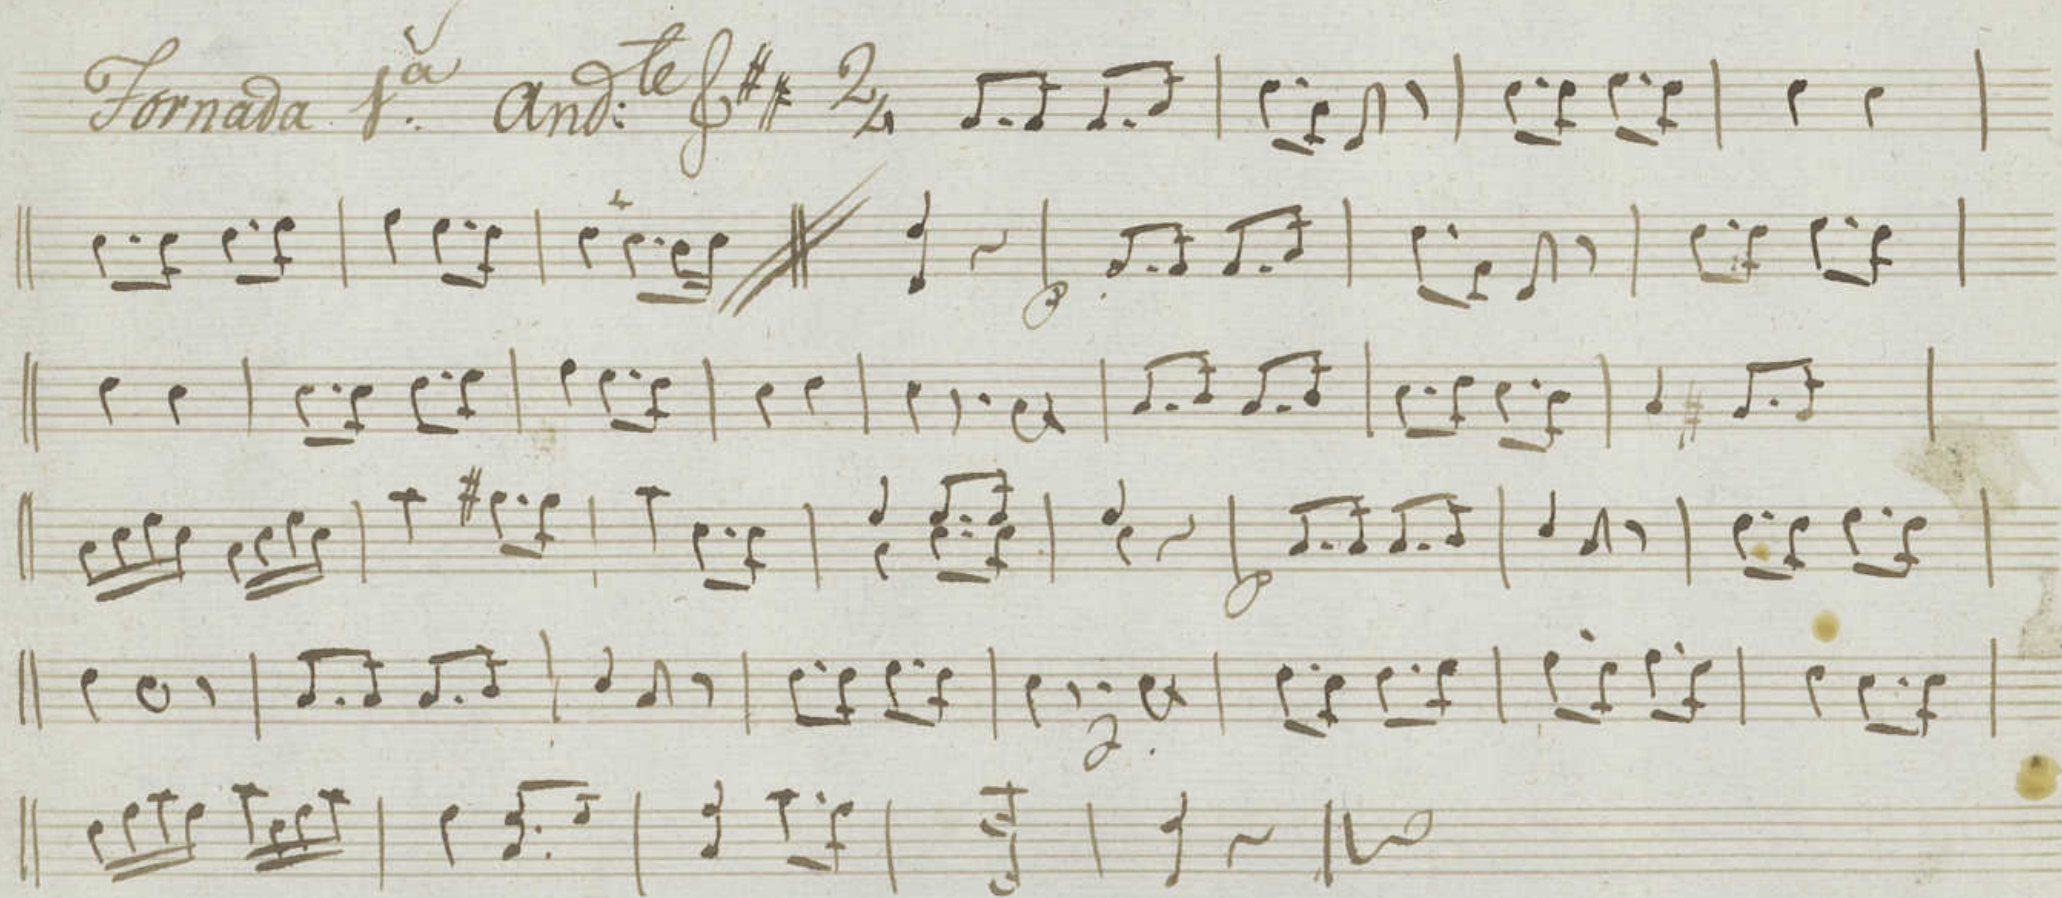 Jornada 1.ª And.te 2/4
p
p
2.